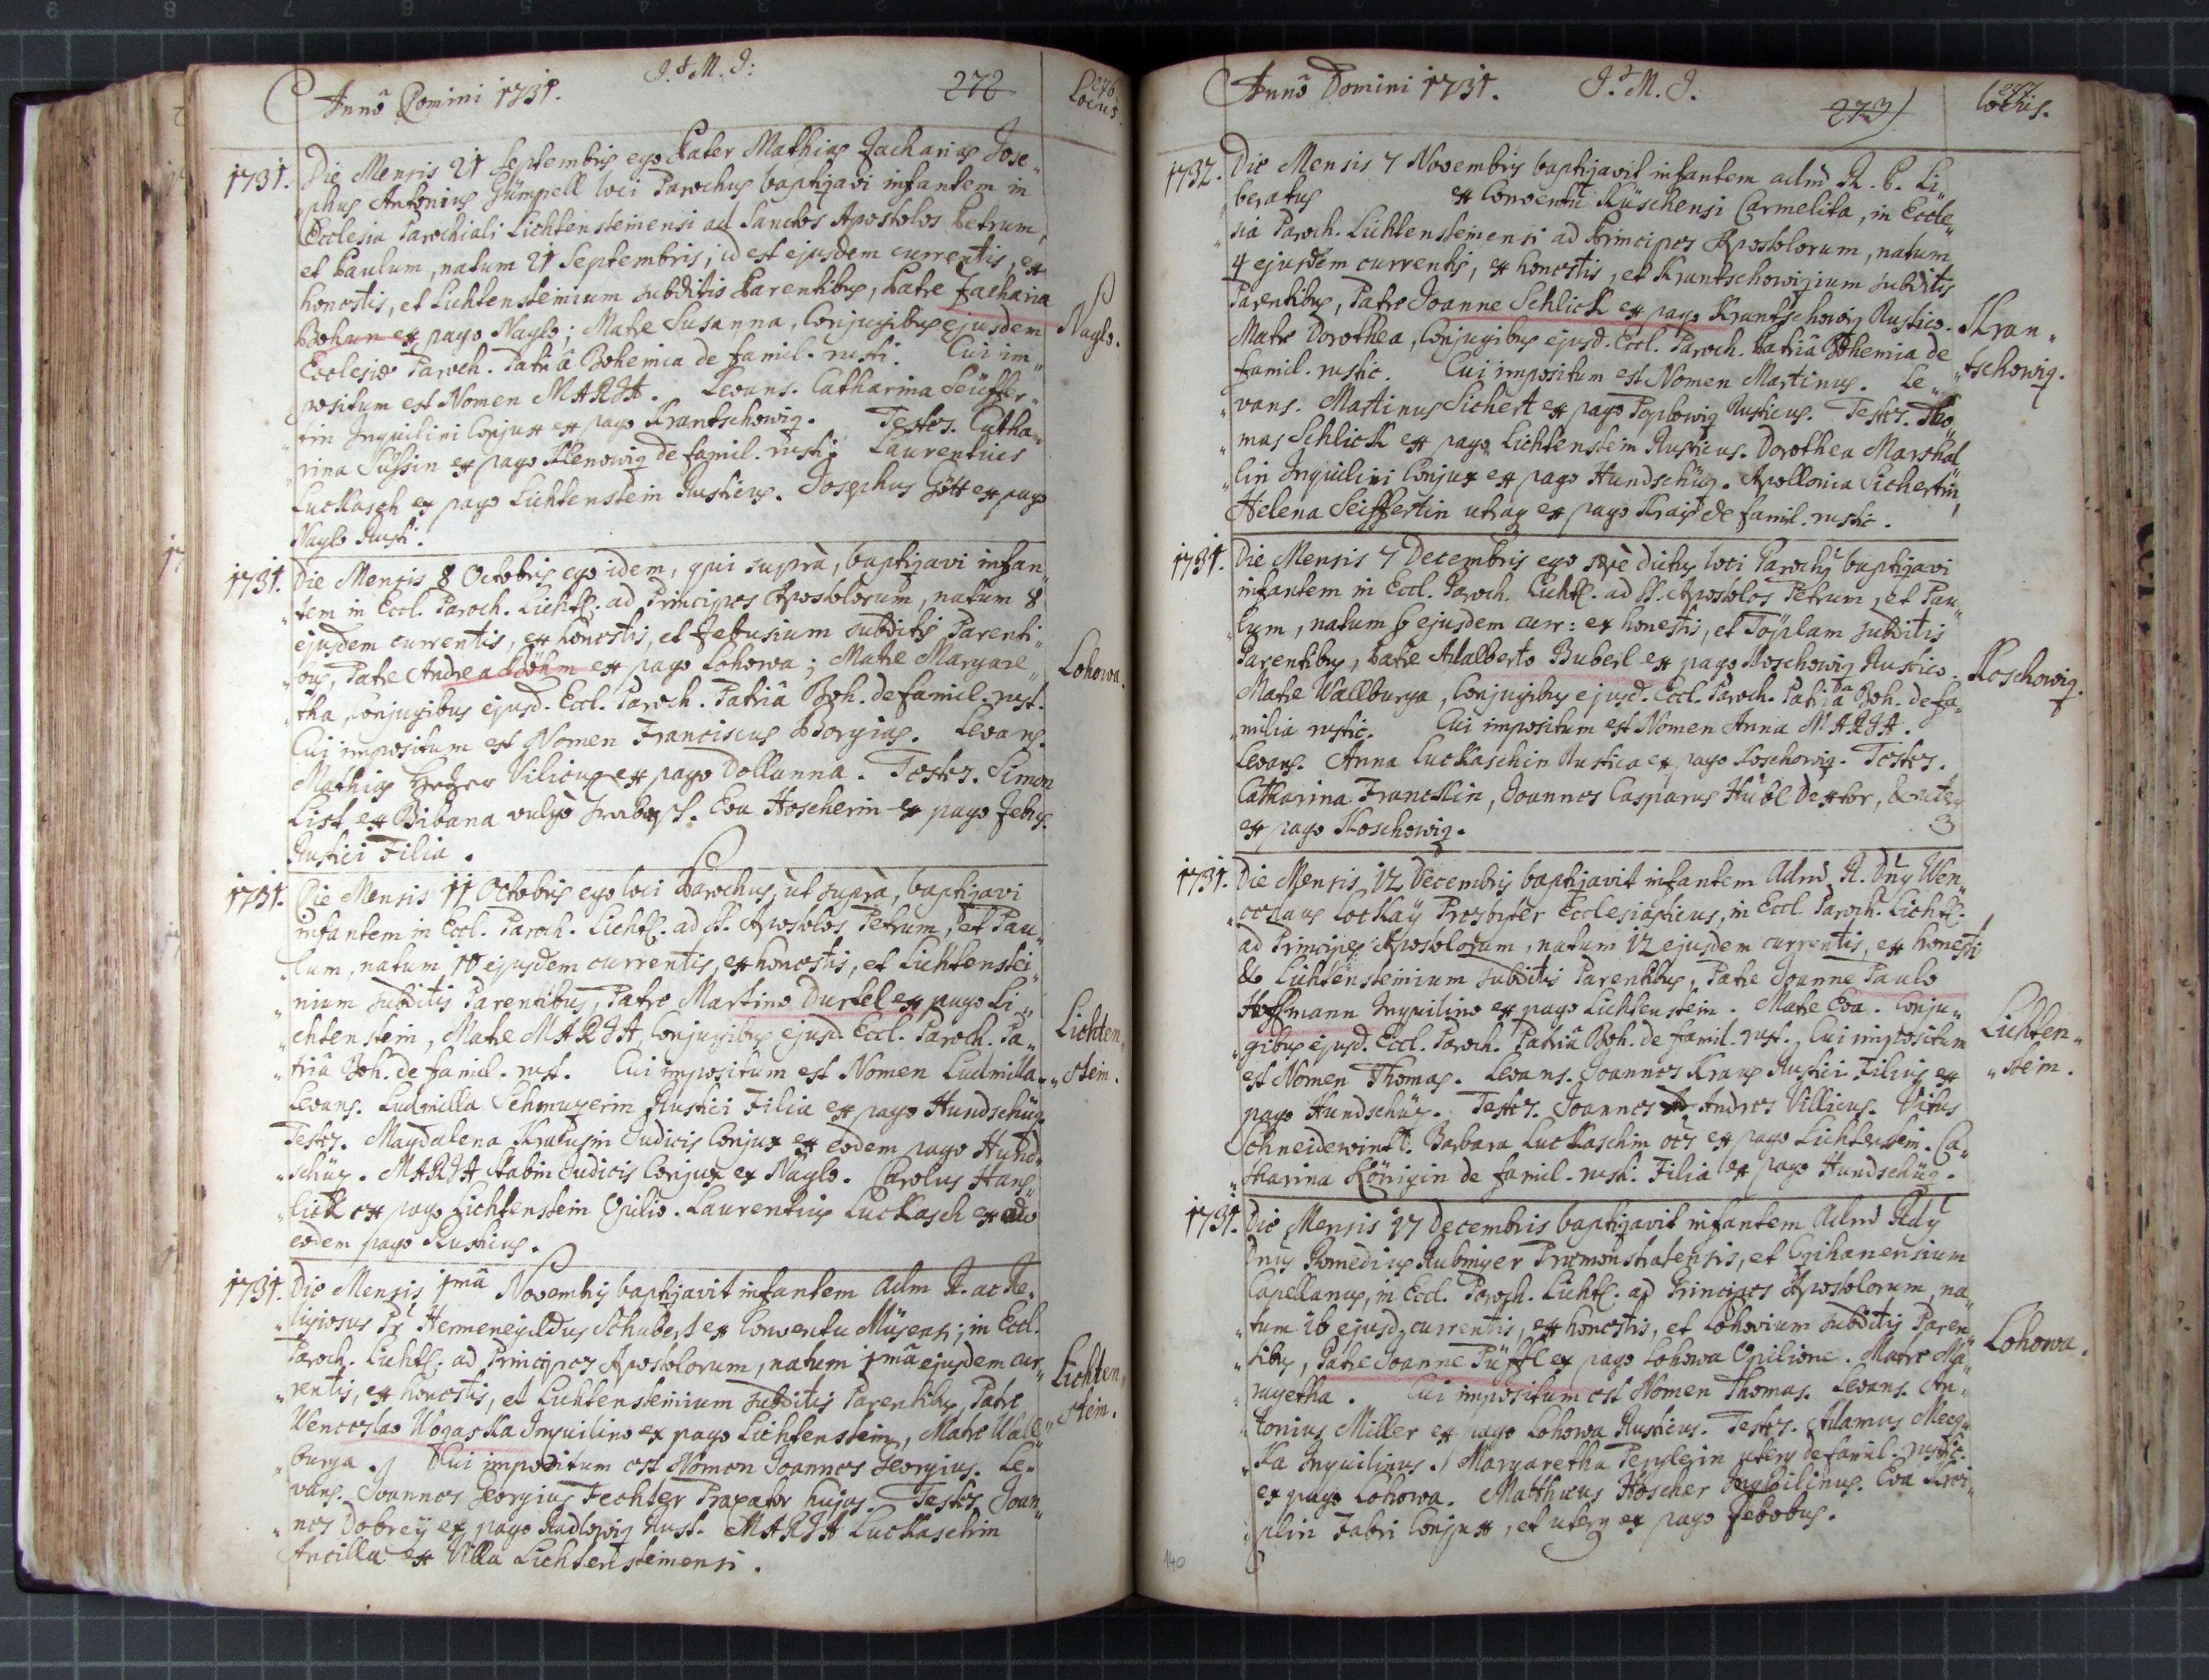 Anno Domini 1731. J. M. J. 272 276 Locus.
1731. Die Mensis 21 Septembris ego Pater Mathias Zacharias Jose„
„phus Antonius Gümpell loci Parochus baptizavi infantem in
Ecclesia Parochiali Lichtensteinensi ad Sanctos Apostolos Petrum,
et Paulum, natum 21 Septembris, id est ejusdem currentis, ex
honestis, et Lichtensteinium subditis Parentibus, Patre Zacharia
Bohun ex pago Naglo; Matre Susanna, Conjugibus ejusdem Naglo.
Ecclesiæ Paroch. Patriâ Bohemica de famil. rusti. Cui im„
positum est Nomen MARIA. Levans. Catharina Seüffer„
„tin Inquilini Conjux ex pago Krantschowiz. Testes. Catha„
„rina Süssin ex pago Klenowiz de famil. rusti. Laurentius
Luckasch ex pago Lichtenstein Rusticus. Josephus Gött ex pago
Naglo Rusti.
1731. Die Mensis 8 Octobris ego idem, qui suprà, baptizavi infan„
„tem in Eccl. Paroch. Lichtl. ad Principes Apostolorum, natum 8
ejusdem currentis, ex honestis, et Jebusium subditis Parenti„
„bus, Patre Andrea Böhm ex pago Lohowa; Matre Margare„ Lohowa.
„tha, Conjugibus ejusd. Eccl. Paroch. Patriâ Boh. de famil. rust.
Cui impositum est Nomen Franciscus Borgias. Levans.
Mathias Hetzer Vilicus ex pago Dollanna. Testes. Simon
List ex Bibana vulgo. Eva Hoscherin ex pago Jebus.
Rustici Filia.
1731. Die Mensis 11 Octobris ego loci Parochus, ut suprà, baptizavi
infantem in Eccl. Paroch. Lichtl. ad SS. Apostolos Petrum, et Pau„
„lum, natum 10 ejusdem currentis, ex honestis, et Lichtenstei„
„nium subditis Parentibus, Patre Martino Durtel ex pago Li„
„chtenstein, Matre MARIA, Conjugibus ejusd. Eccl. Paroch. Pa„ Lichten„
„triâ Boh. de famil. rust. Cui impositum est Nomen Ludmilla. „stein.
Levans. Ludmilla Schmuzerin Rustici Filia ex pago Hundschüz.
Testes. Magdalena Kralusin Judicis Conjux ex eodem pago Hund„
„schüz. MARIA Stabin Judicis Conjux ex Naglo. Carolus Hans„
„lick ex pago Lichtenstein Opilio. Laurentius Luckasch ex
eodem pago Rusticus.
1731. Die Mensis 1mâ Novembris baptizavit infantem Adm R. ac Re„
„ligiosus Pr Hermenegildus Schubert ex Conventu Mÿsensi; in Eccl.
Paroch. Lichtl. ad Principes Apostolorum, natum 1mâ ejusdem cur„
„rentis, ex honestis, et Lichtensteinium subditis Parentibus, Patre Lichten„
Wenceslao Wogaska Inquilino ex pago Lichtenstein, Matre Wall„ „stein.
„burga. Cui impositum est Nomen Joannes Georgius. Le„
vans. Joannes Georgius Fechter Braxator hujas. Testes. Joan„
„nes Dobreÿ ex pago Radlowiz Rust. MARIA Luckaschin
Ancilla ex Villa Lichtensteinensi.
Anno Domini 1731. J. M. J. 273 277 Locus.
1732. Die Mensis 7 Novembris baptizavit infantem adm R. P. Li„
„beratus ex Conventu Küschensi Carmelita, in Eccle„
„sia Paroch. Lichtensteinensi ad Principes Apostolorum, natum
4 ejusdem currentis, ex honestis, et Krantschowizium subditis
Parentibus, Patre Joanne Schlick ex pago Krantschowiz Rustico. Kran„
Matre Dorothea, Conjugibus ejusd. Eccl. Paroch. Patriâ Bohemia de „tschowiz.
famil. rustic. Cui impositum est Nomen Martinus. Le„
„vans. Martinus Sichert ex pago Poplowiz Rusticus. Testes. Tho„
„mas Schlick ex pago Lichtenstein Rusticus. Dorothea Marschal„
„lin Inquilini Conjux ex pago Hundschüz. Apollonia Sichertin,
Helena Seiffertin utraq ex pago de famil. rustic.
1731. Die Mensis 7 Decembris ego sæpè dictus loci Parochus baptizavi
infantem in Eccl. Paroch. Lichtl. ad SS. Apostolos Petrum, et Pau„
„lum, natum 6 ejusdem curr: ex honestis, et Töplam subditis
Parentibus, Patre Adalberto Buberl ex pago Koschowiz Rustico. Koschowiz.
Matre Wallburga, Conjugibus ejusd. Eccl. Paroch. Patriâ Boh. de fa„
„milia rustic. Cui impositum est Nomen Anna MARIA.
Levans. Anna Luckaschin Rustica ex pago Koschowiz. Testes.
Catharina Franckin, Joannes Casparus Hübl Textor,
ex pago Koschowiz.
1731. Die Mensis 12 Decembris baptizavit infantem Adm R. Dnus Wen„
„ceslaus Lockaÿ Presbyter Ecclesiasticus, in Eccl. Paroch. Lichtl.
ad Principes Apostolorum, natum 12 ejusdem currentis, ex honestis
& Lichtensteinium subditis Parentibus, Patre Joanne Paulo
Hoffmann Inquilino ex pago Lichtenstein. Matre Eva. Conju„ Lichten„
„gibus ejusd. Eccl. Paroch. Patriâ Boh. de famil. rust. Cui impositum „stein.
est Nomen Thomas. Levans. Joannes Kraus Rustici Filius ex
pago Hundschüz. Testes. Joannes Andres Villicus. Vitus
Schneiderwinkl. Barbara Luckaschin oes ex pago Lichtenstein. Ca„
„tharina Königin de famil. rusti. Filia ex pago Hundschüz.
1731. Die Mensis 17 Decembris baptizavit infantem Adm Rdus
Dnus Romedius Rubinger Præmonstratensis, et Egihanensium
Capellanus, in Eccl. Paroch. Lichtl. ad Principes Apostolorum, na„
„tum 16 ejusd. currentis, ex honestis, et Lohovium subditis Paren„ Lohowa.
„tibus, Patre Joanne Püffl ex pago Lohowa Opilione. Matre Ma„
„rgetha. Cui impositum est Nomen Thomas. Levans. An„
„tonius Miller ex pago Lohowa Rusticus. Testes. Adamus Meez„
„ka Inquilinus. Margaretha Penzlerin uterq de famil. rustic.
ex pago Lohowa. Matthæus Hoscher Inquilinus. Eva Krei„
„plin Fabri Conjux, et uterq ex pago Jebobus.
140